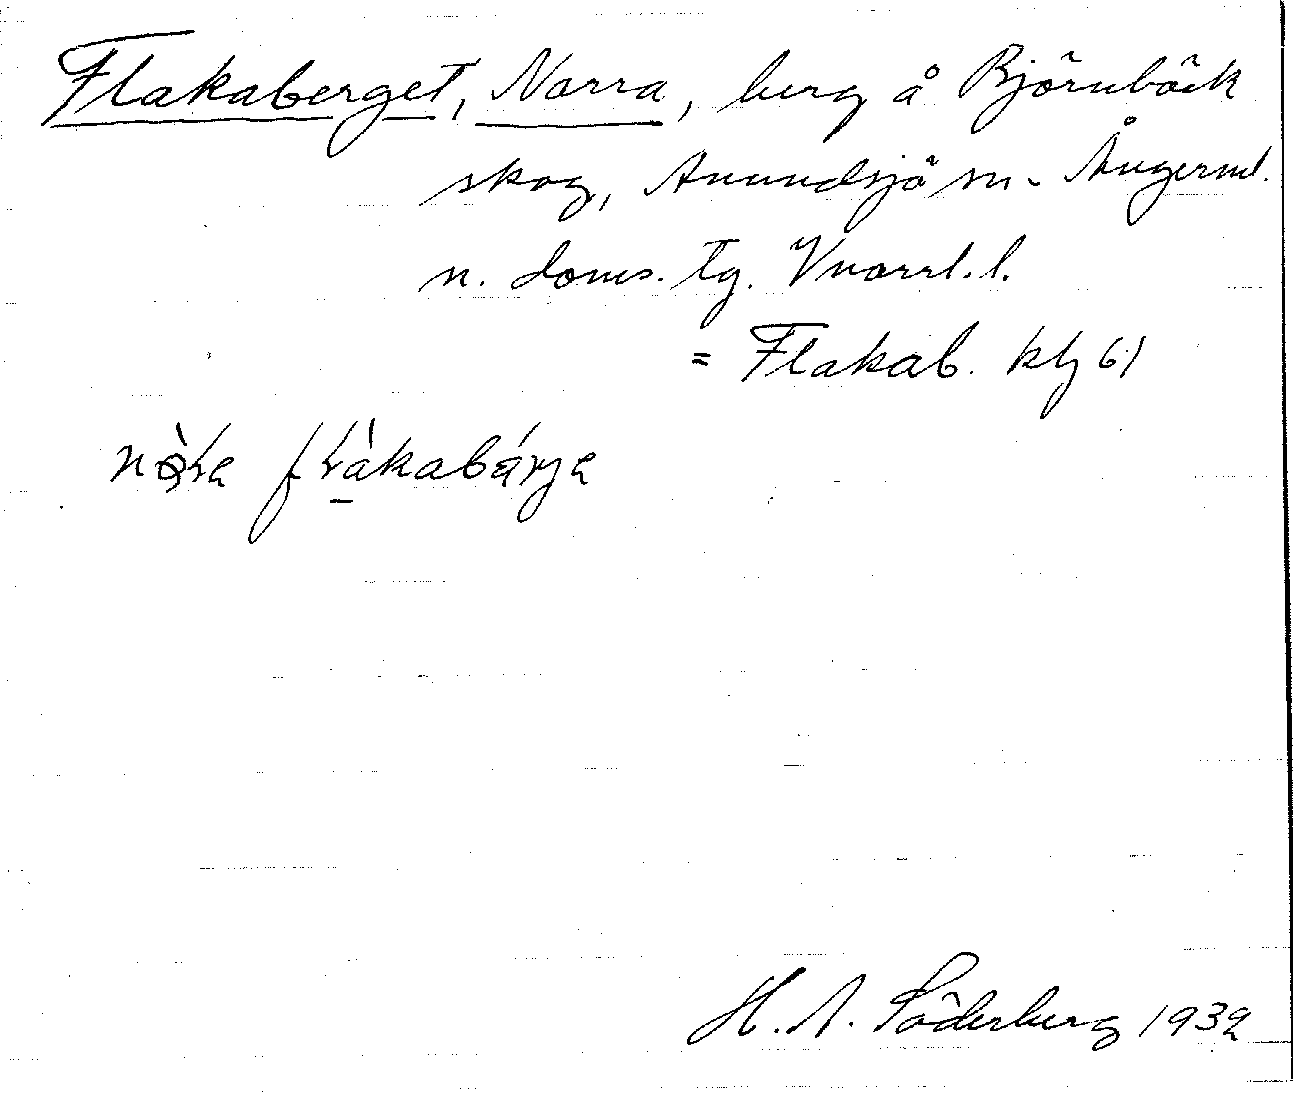 Flakaberget, Norra, berg å Björnbäck
skog, Anundsjö sn. Ångerml.
n. doms. tg. Vnorrl. l.
= Flakab. kbl 61
H. A. Söderberg 1932